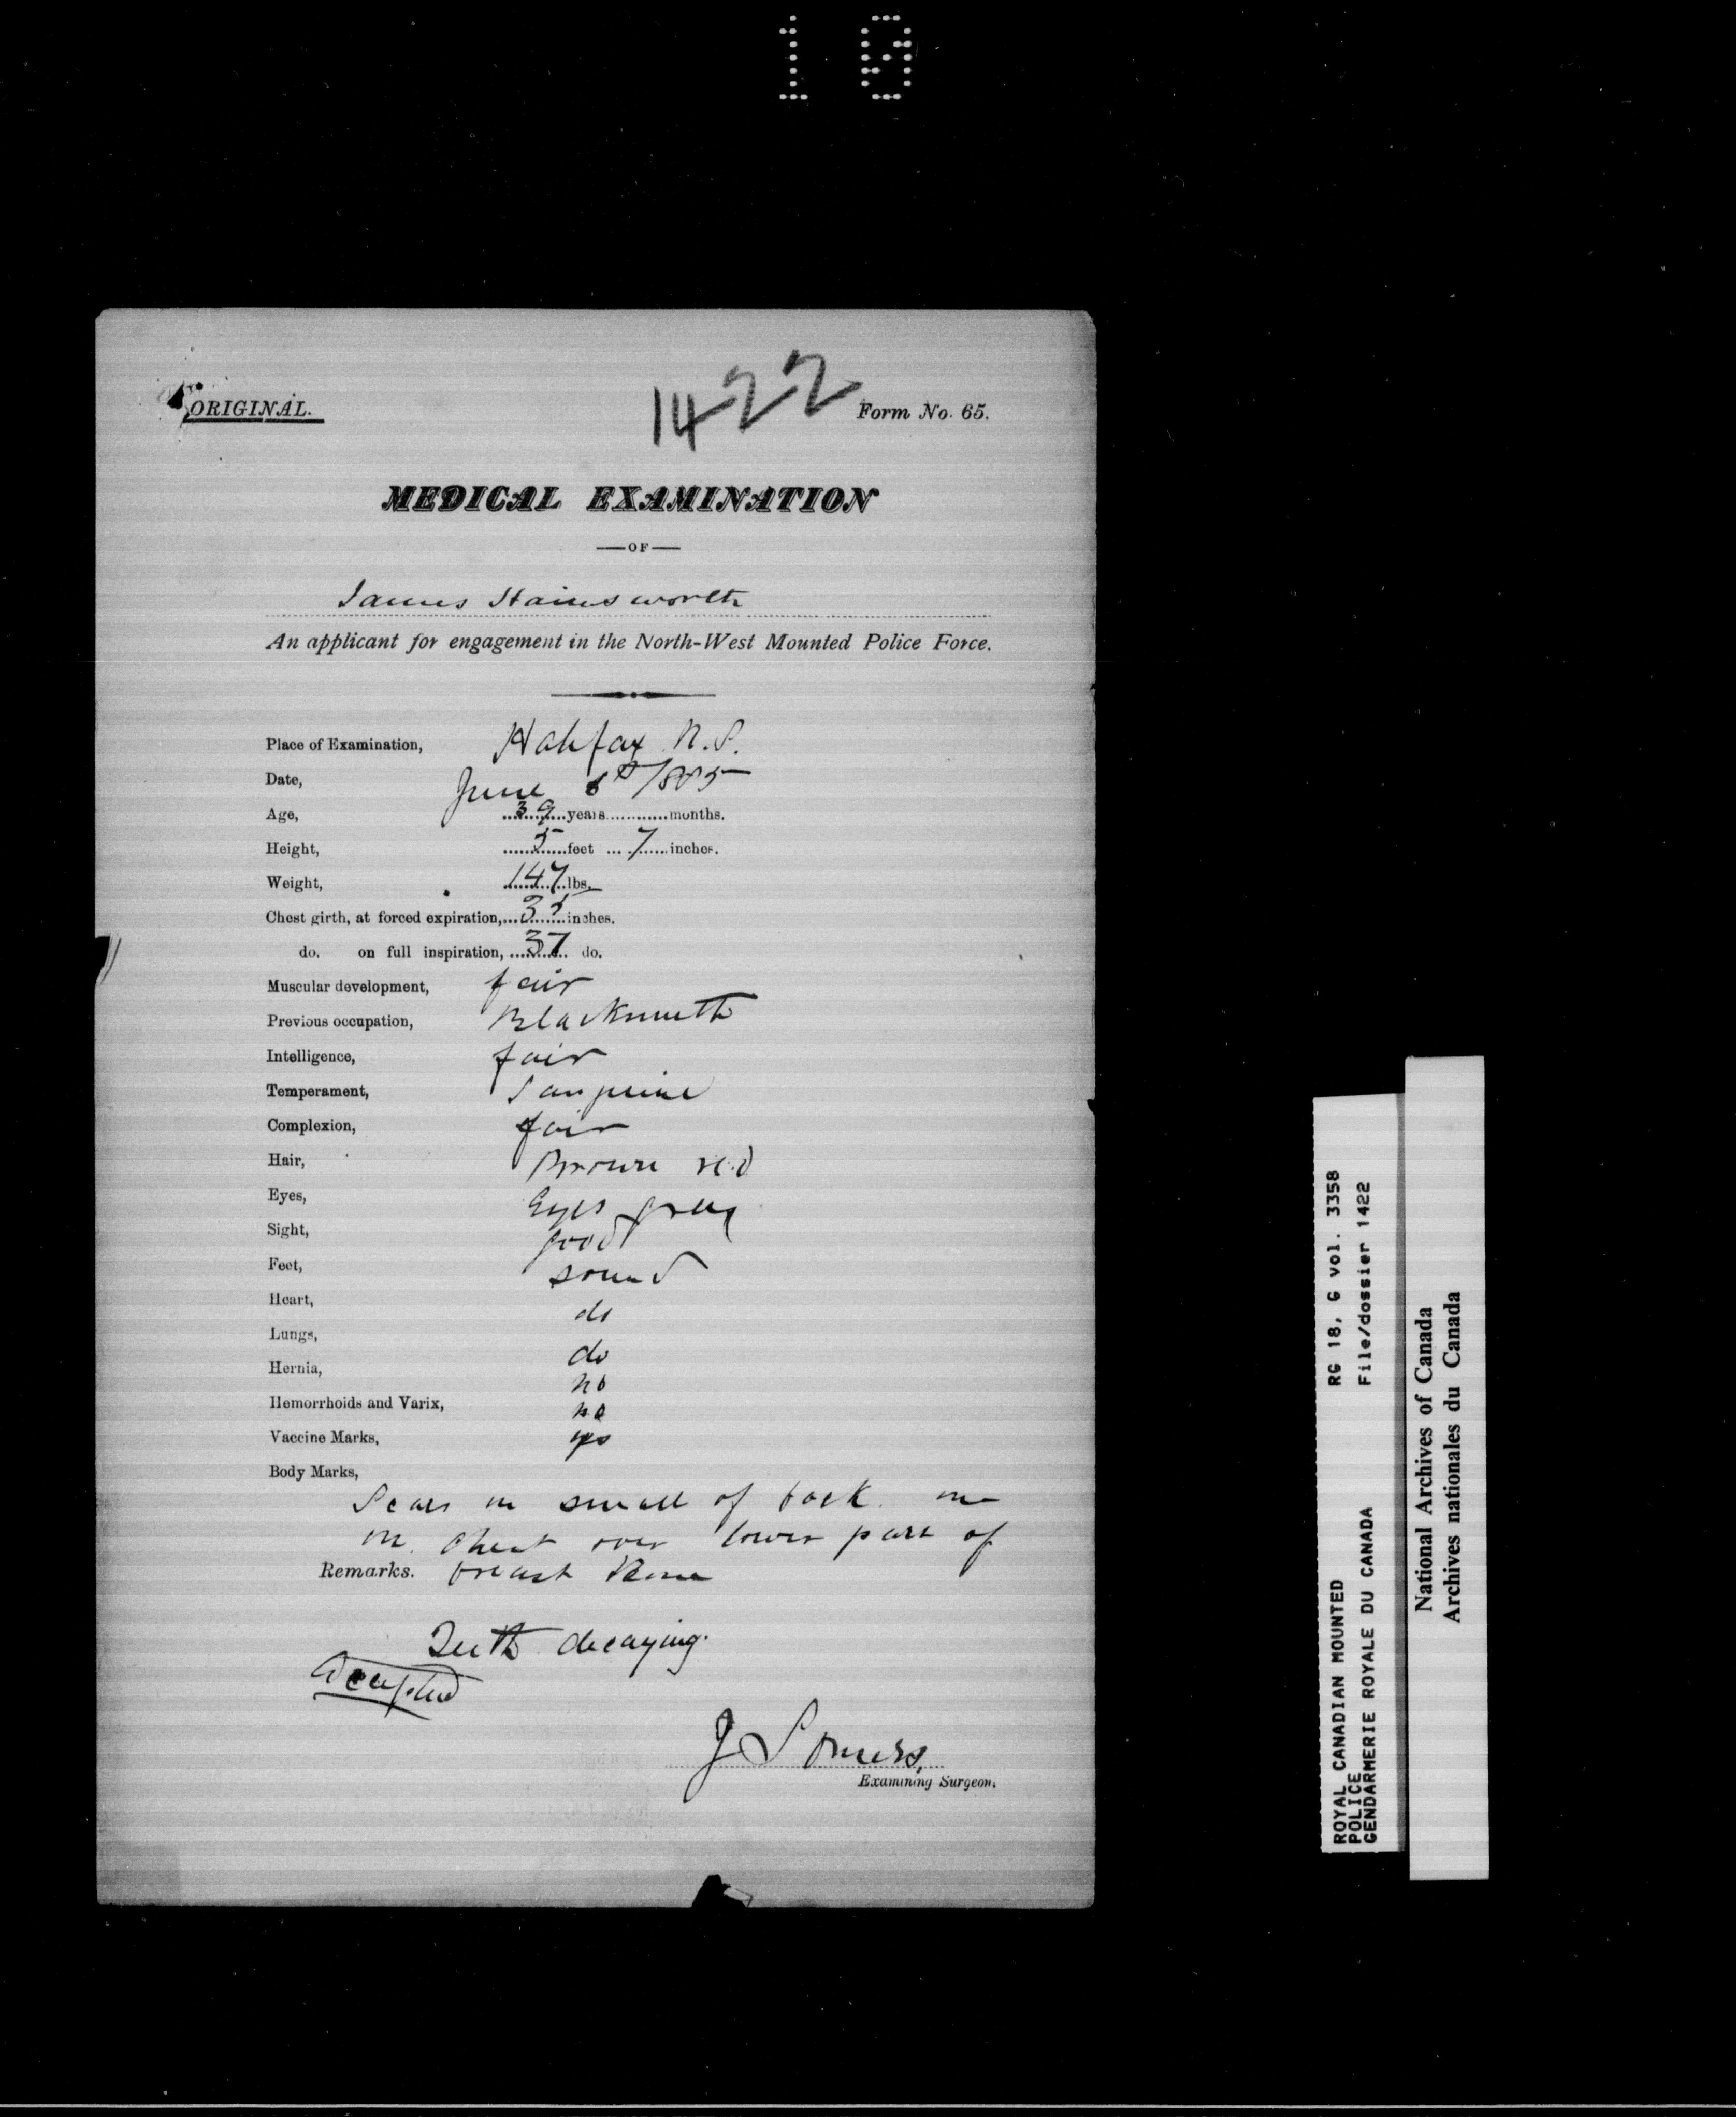 10
ORIGINAL.
1422
Form No. 65.
MEDICAL EXAMINATION
—OF—
James Hainsworth
An applicant for engagement in the North-West Mounted Police Force.
Place of Examination, Halifax N.S.
Date, June 8th 1885
Age, 39 years months.
Height, 5 feet 7 inches.
Weight, 147 lbs.
Chest girth, at forced expiration, 35 inches.
do. on full inspiration, 37 do.
Muscular development, fair
Previous occupation, Blacksmith
Intelligence, fair
Temperament, Sanguine
Complexion, fair
Hair, Brown red
Eyes, Eyes grey
Sight, good
Feet, sound
Heart, do
Lungs, do
Hernia, no
Hemorrhoids and Varix, no
Vaccine Marks, yes
Body Marks,
Scars on small of back. one
on chest over lower part of
Remarks. breast bone
Teeth decaying.
Accepted
J Somers,
Examining Surgeon.
ROYAL CANADIAN MOUNTED RG 18, G vol. 3358
POLICE
GENDARMERIE ROYALE DU CANADA File/dossier 1422
National Archives of Canada
Archives nationales du Canada